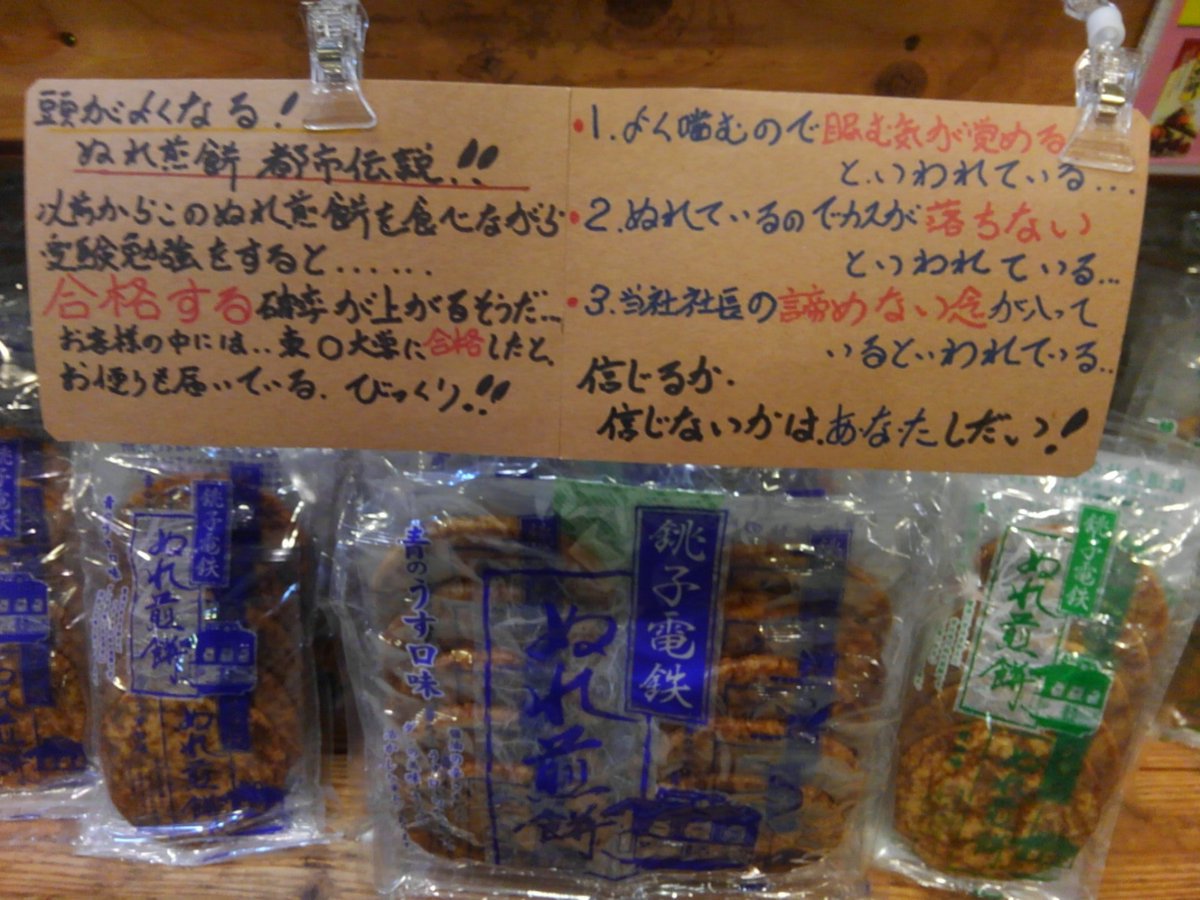 頭がよくなる!
ぬれ煎餅 都市伝説!!
以前からこのぬれ煎餅を食べながら
受験勉強をすると……
合格する確率が上がるそうだ…
お客様の中には‥東〇大学に合格したと、
お便りも届いている。びっくり!!
・1.よく噛むので眠む気が覚める
といわれている…
・2.ぬれているのでカスが落ちない
といわれている…
・3.当社社長の諦めない念が入って
いるといわれている‥
信じるか、
信じないかは、あなたしだい!
銚子電鉄
ぬれ煎餅
ぬれ煎餅
青のうす口味
銚子電鉄
ぬれ煎餅
銚子電鉄
ぬれ煎餅